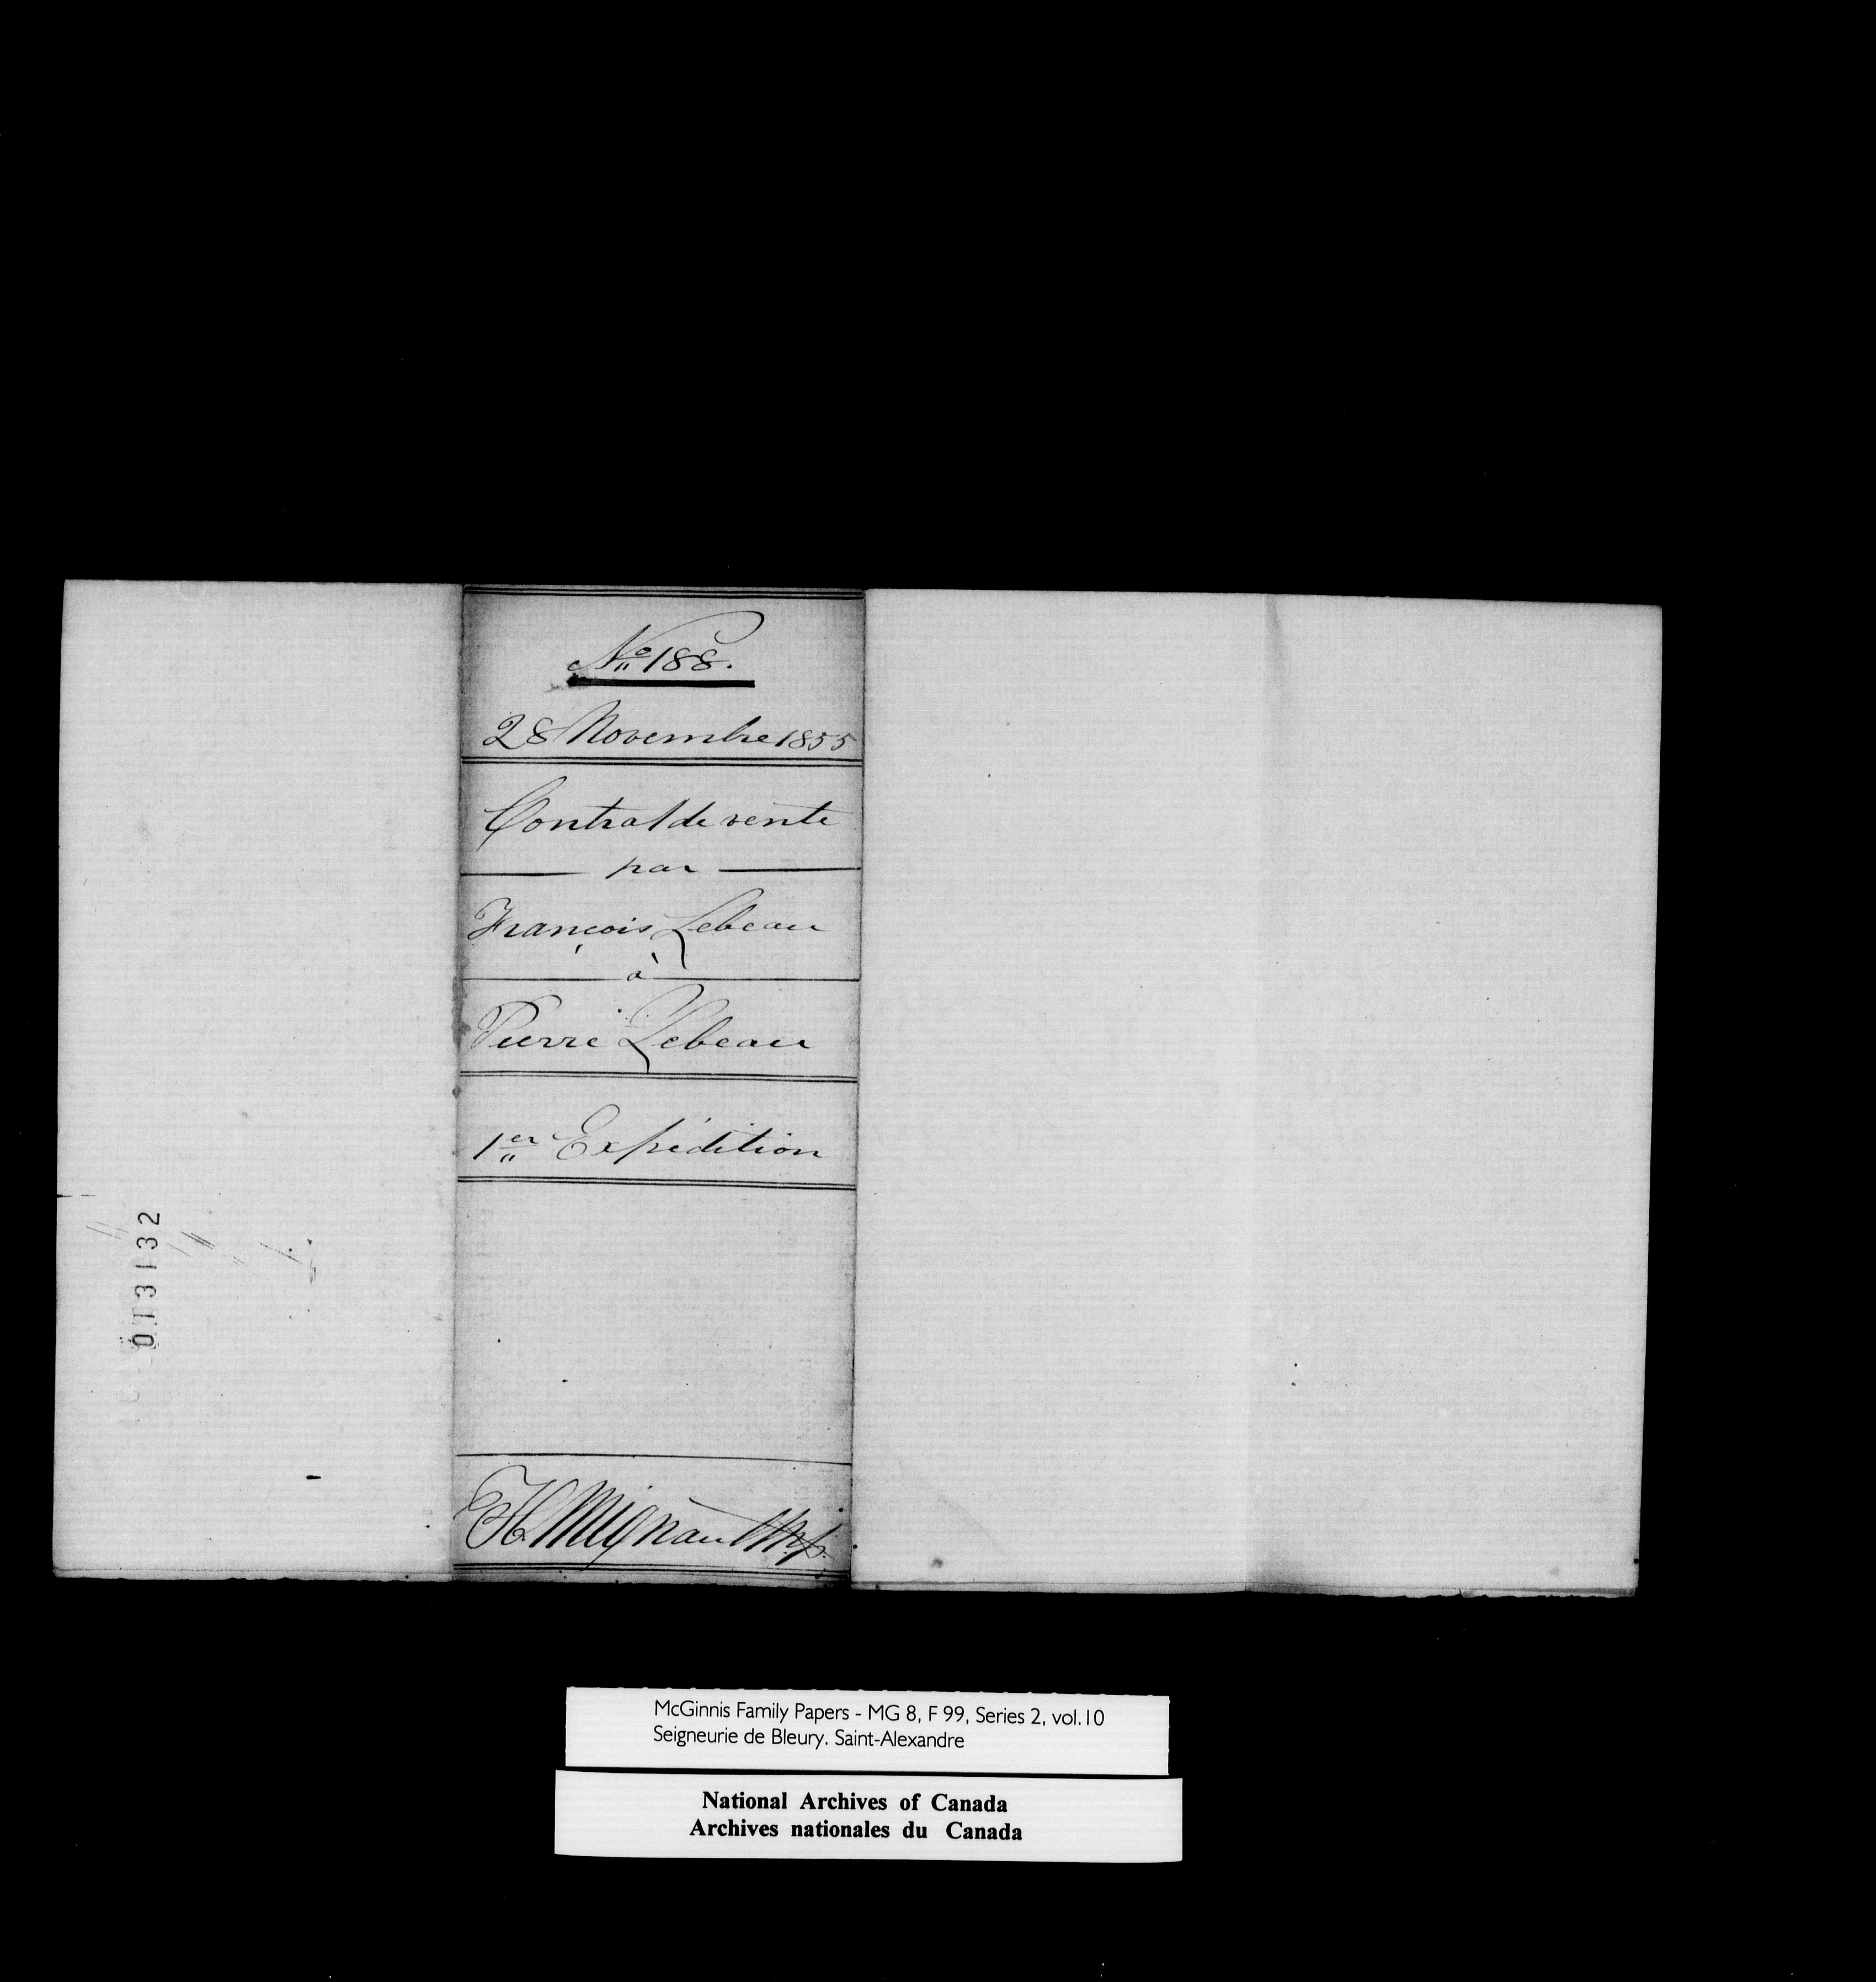 No 188.
28 Novembre 1855
Contrat de vente
par
François Lebeau
à
Pierre Lebeau
1er Expédition
013132
McGinnis Family Papers - MG 8, F 99, Series 2, vol.10
Seigneurie de Bleury. Saint-Alexandre
National Archives of Canada
Archives nationales du Canada